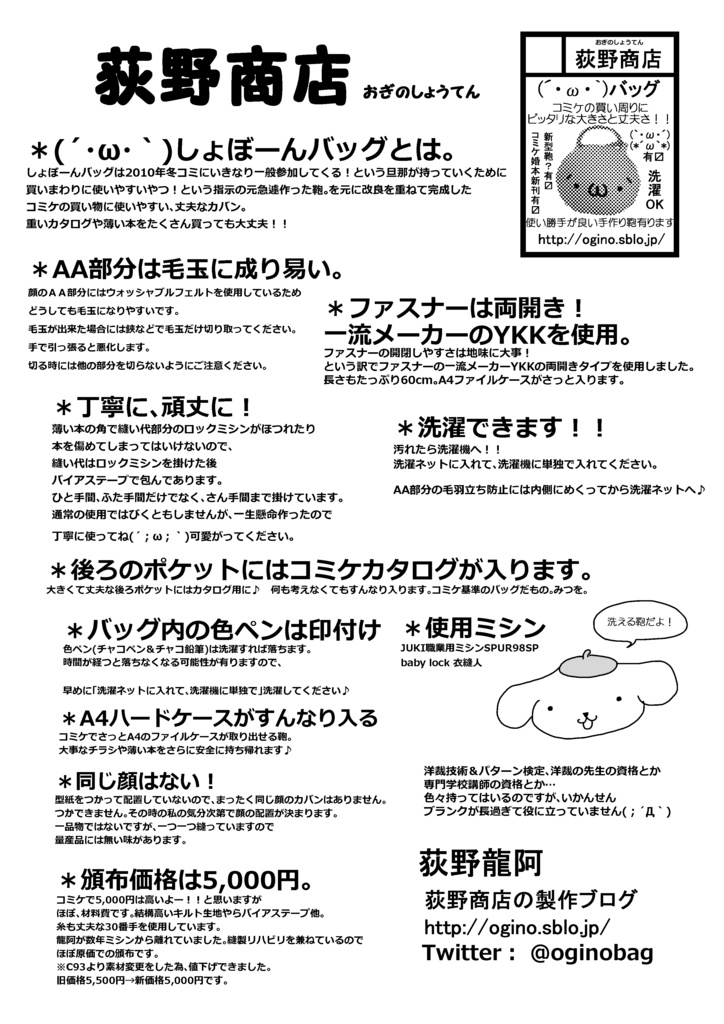 荻野商店 おぎのしょうてん
おぎのしょうてん
荻野商店
(´・ω・`)バッグ
コミケの買い周りに
ピッタリな大きさと丈夫さ！！
新型鞄？有〼
コミケ婚本新刊有〼
(｀・ω・´)
(*´ω｀*)
有〼
洗濯
OK
使い勝手が良い手作り鞄有ります
http://ogino.sblo.jp/
＊(´･ω･｀)しょぼーんバッグとは。
しょぼーんバッグは2010年冬コミにいきなり一般参加してくる！という旦那が持っていくために
買いまわりに使いやすいやつ！という指示の元急遽作った鞄。を元に改良を重ねて完成した
コミケの買い物に使いやすい、丈夫なカバン。
重いカタログや薄い本をたくさん買っても大丈夫！！
＊AA部分は毛玉に成り易い。
顔のＡＡ部分にはウォッシャブルフェルトを使用しているため
どうしても毛玉になりやすいです。
毛玉が出来た場合には鋏などで毛玉だけ切り取ってください。
手で引っ張ると悪化します。
切る時には他の部分を切らないようにご注意ください。
＊ファスナーは両開き！
一流メーカーのYKKを使用。
ファスナーの開閉しやすさは地味に大事！
という訳でファスナーの一流メーカーYKKの両開きタイプを使用しました。
長さもたっぷり60cm。A4ファイルケースがさっと入ります。
＊丁寧に、頑丈に！
薄い本の角で縫い代部分のロックミシンがほつれたり
本を傷めてしまってはいけないので、
縫い代はロックミシンを掛けた後
バイアステープで包んであります。
ひと手間、ふた手間だけでなく、さん手間まで掛けています。
通常の使用ではびくともしませんが、一生懸命作ったので
丁寧に使ってね(´；ω；｀)可愛がってください。
＊洗濯できます！！
汚れたら洗濯機へ！！
洗濯ネットに入れて、洗濯機に単独で入れてください。
AA部分の毛羽立ち防止には内側にめくってから洗濯ネットへ♪
＊後ろのポケットにはコミケカタログが入ります。
大きくて丈夫な後ろポケットにはカタログ用に♪　何も考えなくてもすんなり入ります。コミケ基準のバッグだもの。みつを。
＊バッグ内の色ペンは印付け
色ペン(チャコペン＆チャコ鉛筆)は洗濯すれば落ちます。
時間が経つと落ちなくなる可能性が有りますので、
早めに｢洗濯ネットに入れて、洗濯機に単独で｣洗濯してください♪
＊使用ミシン
JUKI職業用ミシンSPUR98SP
baby lock 衣縫人
洗える鞄だよ！
＊A4ハードケースがすんなり入る
コミケでさっとA4のファイルケースが取り出せる鞄。
大事なチラシや薄い本をさらに安全に持ち帰れます♪
＊同じ顔はない！
型紙をつかって配置していないので、まったく同じ顔のカバンはありません。
つかできません。その時の私の気分次第で顔の配置が決まります。
一品物ではないですが、一つ一つ縫っていますので
量産品には無い味があります。
洋裁技術＆パターン検定、洋裁の先生の資格とか
専門学校講師の資格とか…
色々持ってはいるのですが、いかんせん
ブランクが長過ぎて役に立っていません(；´Д｀)
＊頒布価格は5,000円。
コミケで5,000円は高いよー！！と思いますが
ほぼ、材料費です。結構高いキルト生地やらバイアステープ他。
糸も丈夫な30番手を使用しています。
龍阿が数年ミシンから離れていました。縫製リハビリを兼ねているので
ほぼ原価での頒布です。
※C93より素材変更をした為、値下げできました。
旧価格5,500円→新価格5,000円です。
荻野龍阿
荻野商店の製作ブログ
http://ogino.sblo.jp/
Twitter： @oginobag